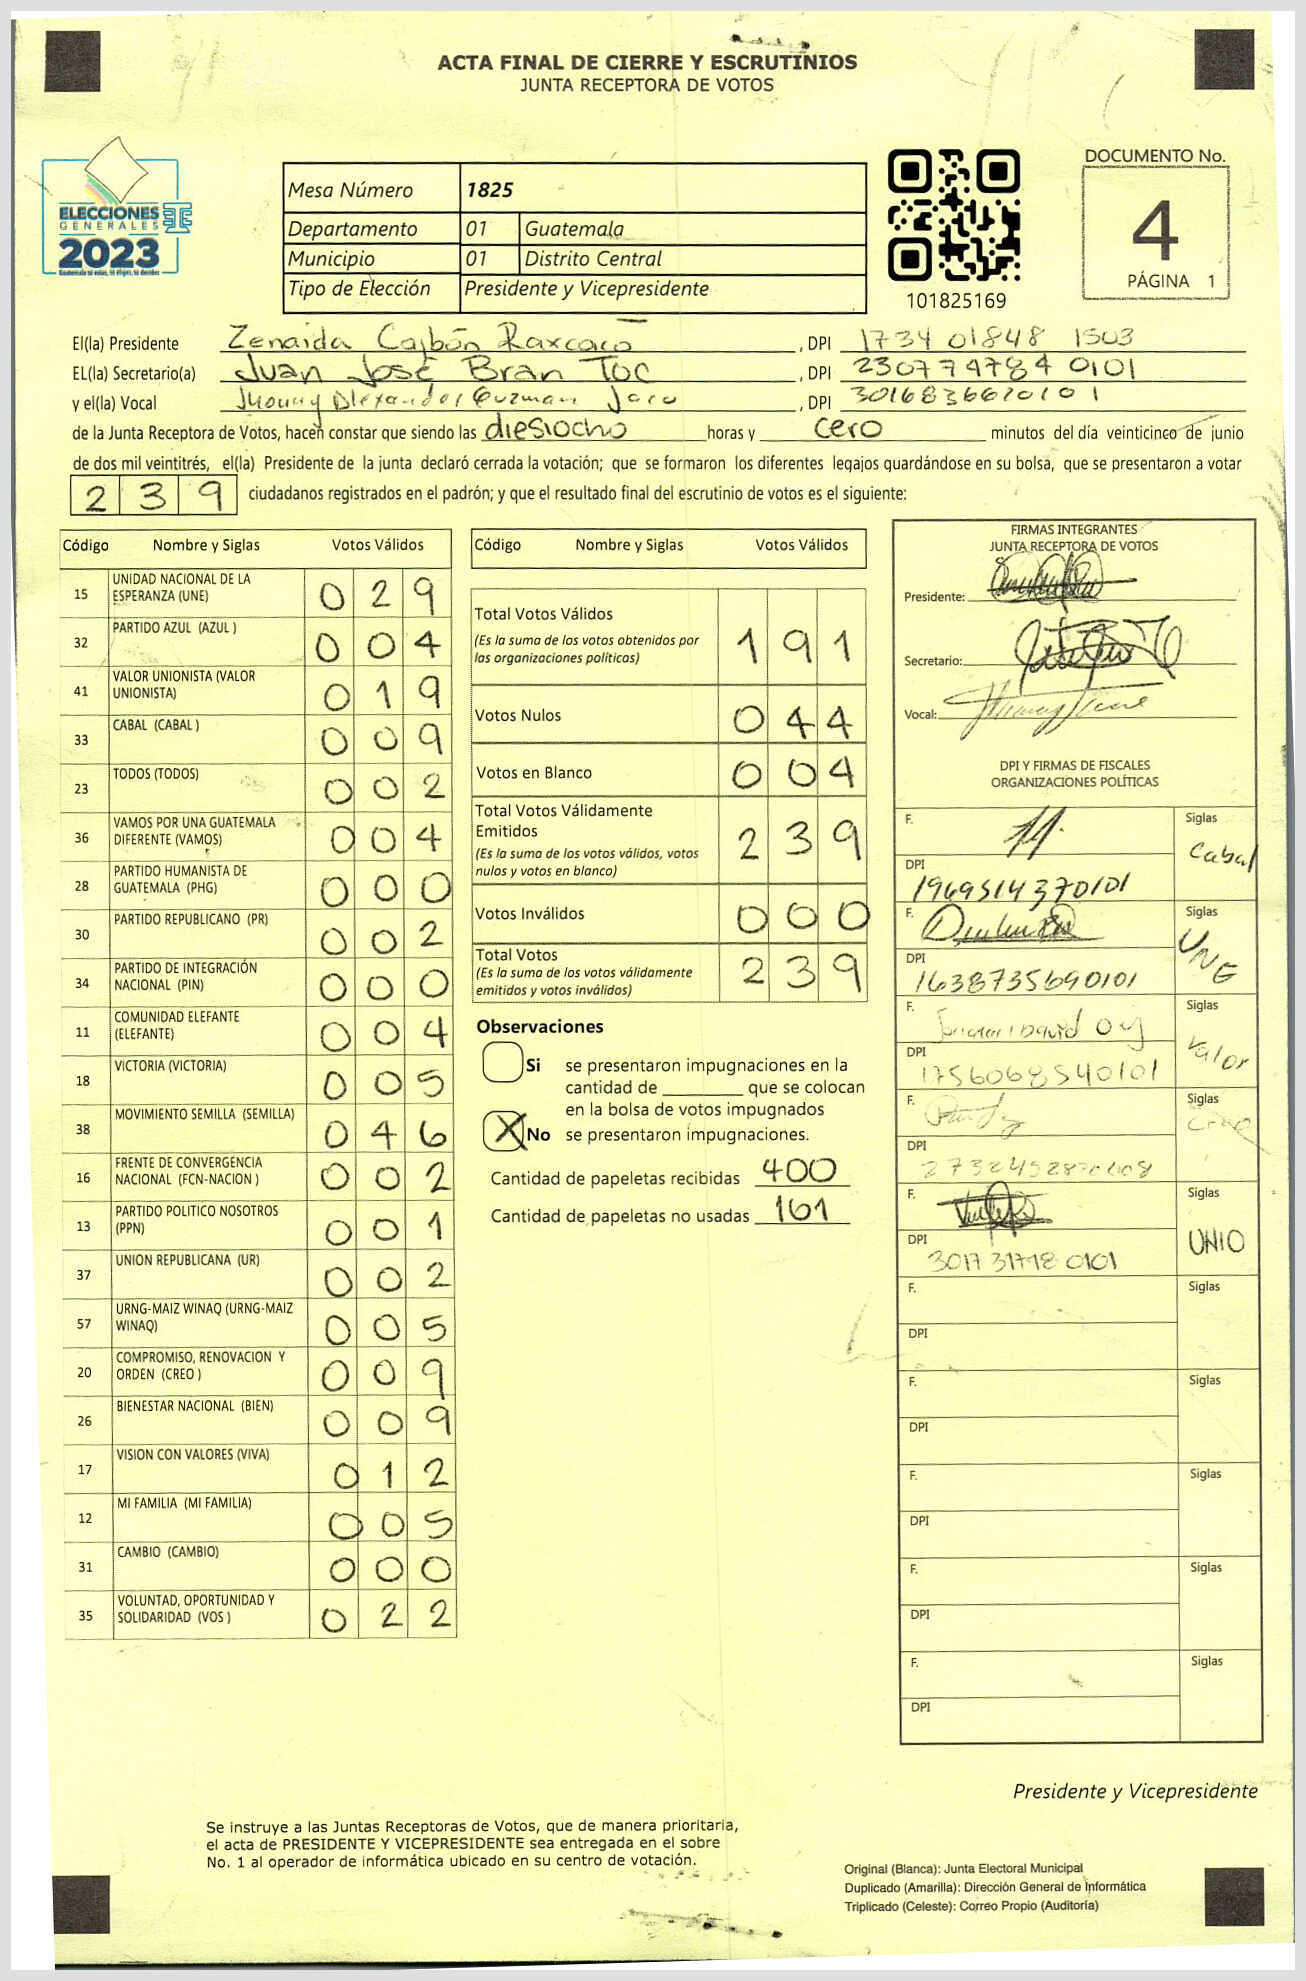 ACTA FINAL DE CIERRE Y ESCRUTINIOS
JUNTA RECEPTORA DE VOTOS
ELECCIONES
GENERALES
2023
Guatemala tú votas, tú eliges, tú decides
Mesa Número 1825
Departamento 01 Guatemala
Municipio 01 Distrito Central
Tipo de Elección Presidente y Vicepresidente
101825169
DOCUMENTO No.
4
PÁGINA 1
El(la) Presidente Zenaida Cajbón Raxcacó, DPI 1734 01848 1503
EL(la) Secretario(a) Juan José Bran Toc, DPI 230774784 0101
y el(la) Vocal Jhonny Alexander Guzman, DPI 3016836620101
de la Junta Receptora de Votos, hacen constar que siendo las diesiocho horas y cero minutos del día veinticinco de junio
de dos mil veintitrés, el(la) Presidente de la junta declaró cerrada la votación; que se formaron los diferentes legajos guardándose en su bolsa, que se presentaron a votar
239 ciudadanos registrados en el padrón; y que el resultado final del escrutinio de votos es el siguiente:
Código Nombre y Siglas Votos Válidos
15 UNIDAD NACIONAL DE LA ESPERANZA (UNE) 029
32 PARTIDO AZUL (AZUL ) 004
41 VALOR UNIONISTA (VALOR UNIONISTA) 019
33 CABAL (CABAL ) 009
23 TODOS (TODOS) 002
36 VAMOS POR UNA GUATEMALA DIFERENTE (VAMOS) 004
28 PARTIDO HUMANISTA DE GUATEMALA (PHG) 000
30 PARTIDO REPUBLICANO (PR) 002
34 PARTIDO DE INTEGRACIÓN NACIONAL (PIN) 000
11 COMUNIDAD ELEFANTE (ELEFANTE) 004
18 VICTORIA (VICTORIA) 005
38 MOVIMIENTO SEMILLA (SEMILLA) 046
16 FRENTE DE CONVERGENCIA NACIONAL (FCN-NACION ) 002
13 PARTIDO POLITICO NOSOTROS (PPN) 001
37 UNION REPUBLICANA (UR) 002
57 URNG-MAIZ WINAQ (URNG-MAIZ WINAQ) 005
20 COMPROMISO, RENOVACION Y ORDEN (CREO ) 009
26 BIENESTAR NACIONAL (BIEN) 009
17 VISION CON VALORES (VIVA) 012
12 MI FAMILIA (MI FAMILIA) 005
31 CAMBIO (CAMBIO) 000
35 VOLUNTAD, OPORTUNIDAD Y SOLIDARIDAD (VOS ) 022
Código Nombre y Siglas Votos Válidos
Total Votos Válidos
(Es la suma de los votos obtenidos por
las organizaciones políticas) 191
Votos Nulos 044
Votos en Blanco 004
Total Votos Válidamente
Emitidos
(Es la suma de los votos válidos, votos
nulos y votos en blanco) 239
Votos Inválidos 000
Total Votos
(Es la suma de los votos válidamente
emitidos y votos inválidos) 239
Observaciones
Si se presentaron impugnaciones en la
cantidad de ________ que se colocan
en la bolsa de votos impugnados
X No se presentaron impugnaciones.
Cantidad de papeletas recibidas 400
Cantidad de papeletas no usadas 161
FIRMAS INTEGRANTES
JUNTA RECEPTORA DE VOTOS
Presidente:
Secretario:
Vocal:
DPI Y FIRMAS DE FISCALES
ORGANIZACIONES POLÍTICAS
F. Siglas Cabal
DPI 1969514370101
F. Siglas UNE
DPI 1638735690101
F. Siglas Valor
DPI 1756068540101
F. Siglas
DPI
F. Siglas UNIO
DPI 301731778 0101
F. Siglas
DPI
F. Siglas
DPI
F. Siglas
DPI
F. Siglas
DPI
F. Siglas
DPI
Presidente y Vicepresidente
Se instruye a las Juntas Receptoras de Votos, que de manera prioritaria,
el acta de PRESIDENTE Y VICEPRESIDENTE sea entregada en el sobre
No. 1 al operador de informática ubicado en su centro de votación.
Original (Blanca): Junta Electoral Municipal
Duplicado (Amarilla): Dirección General de Informática
Triplicado (Celeste): Correo Propio (Auditoría)